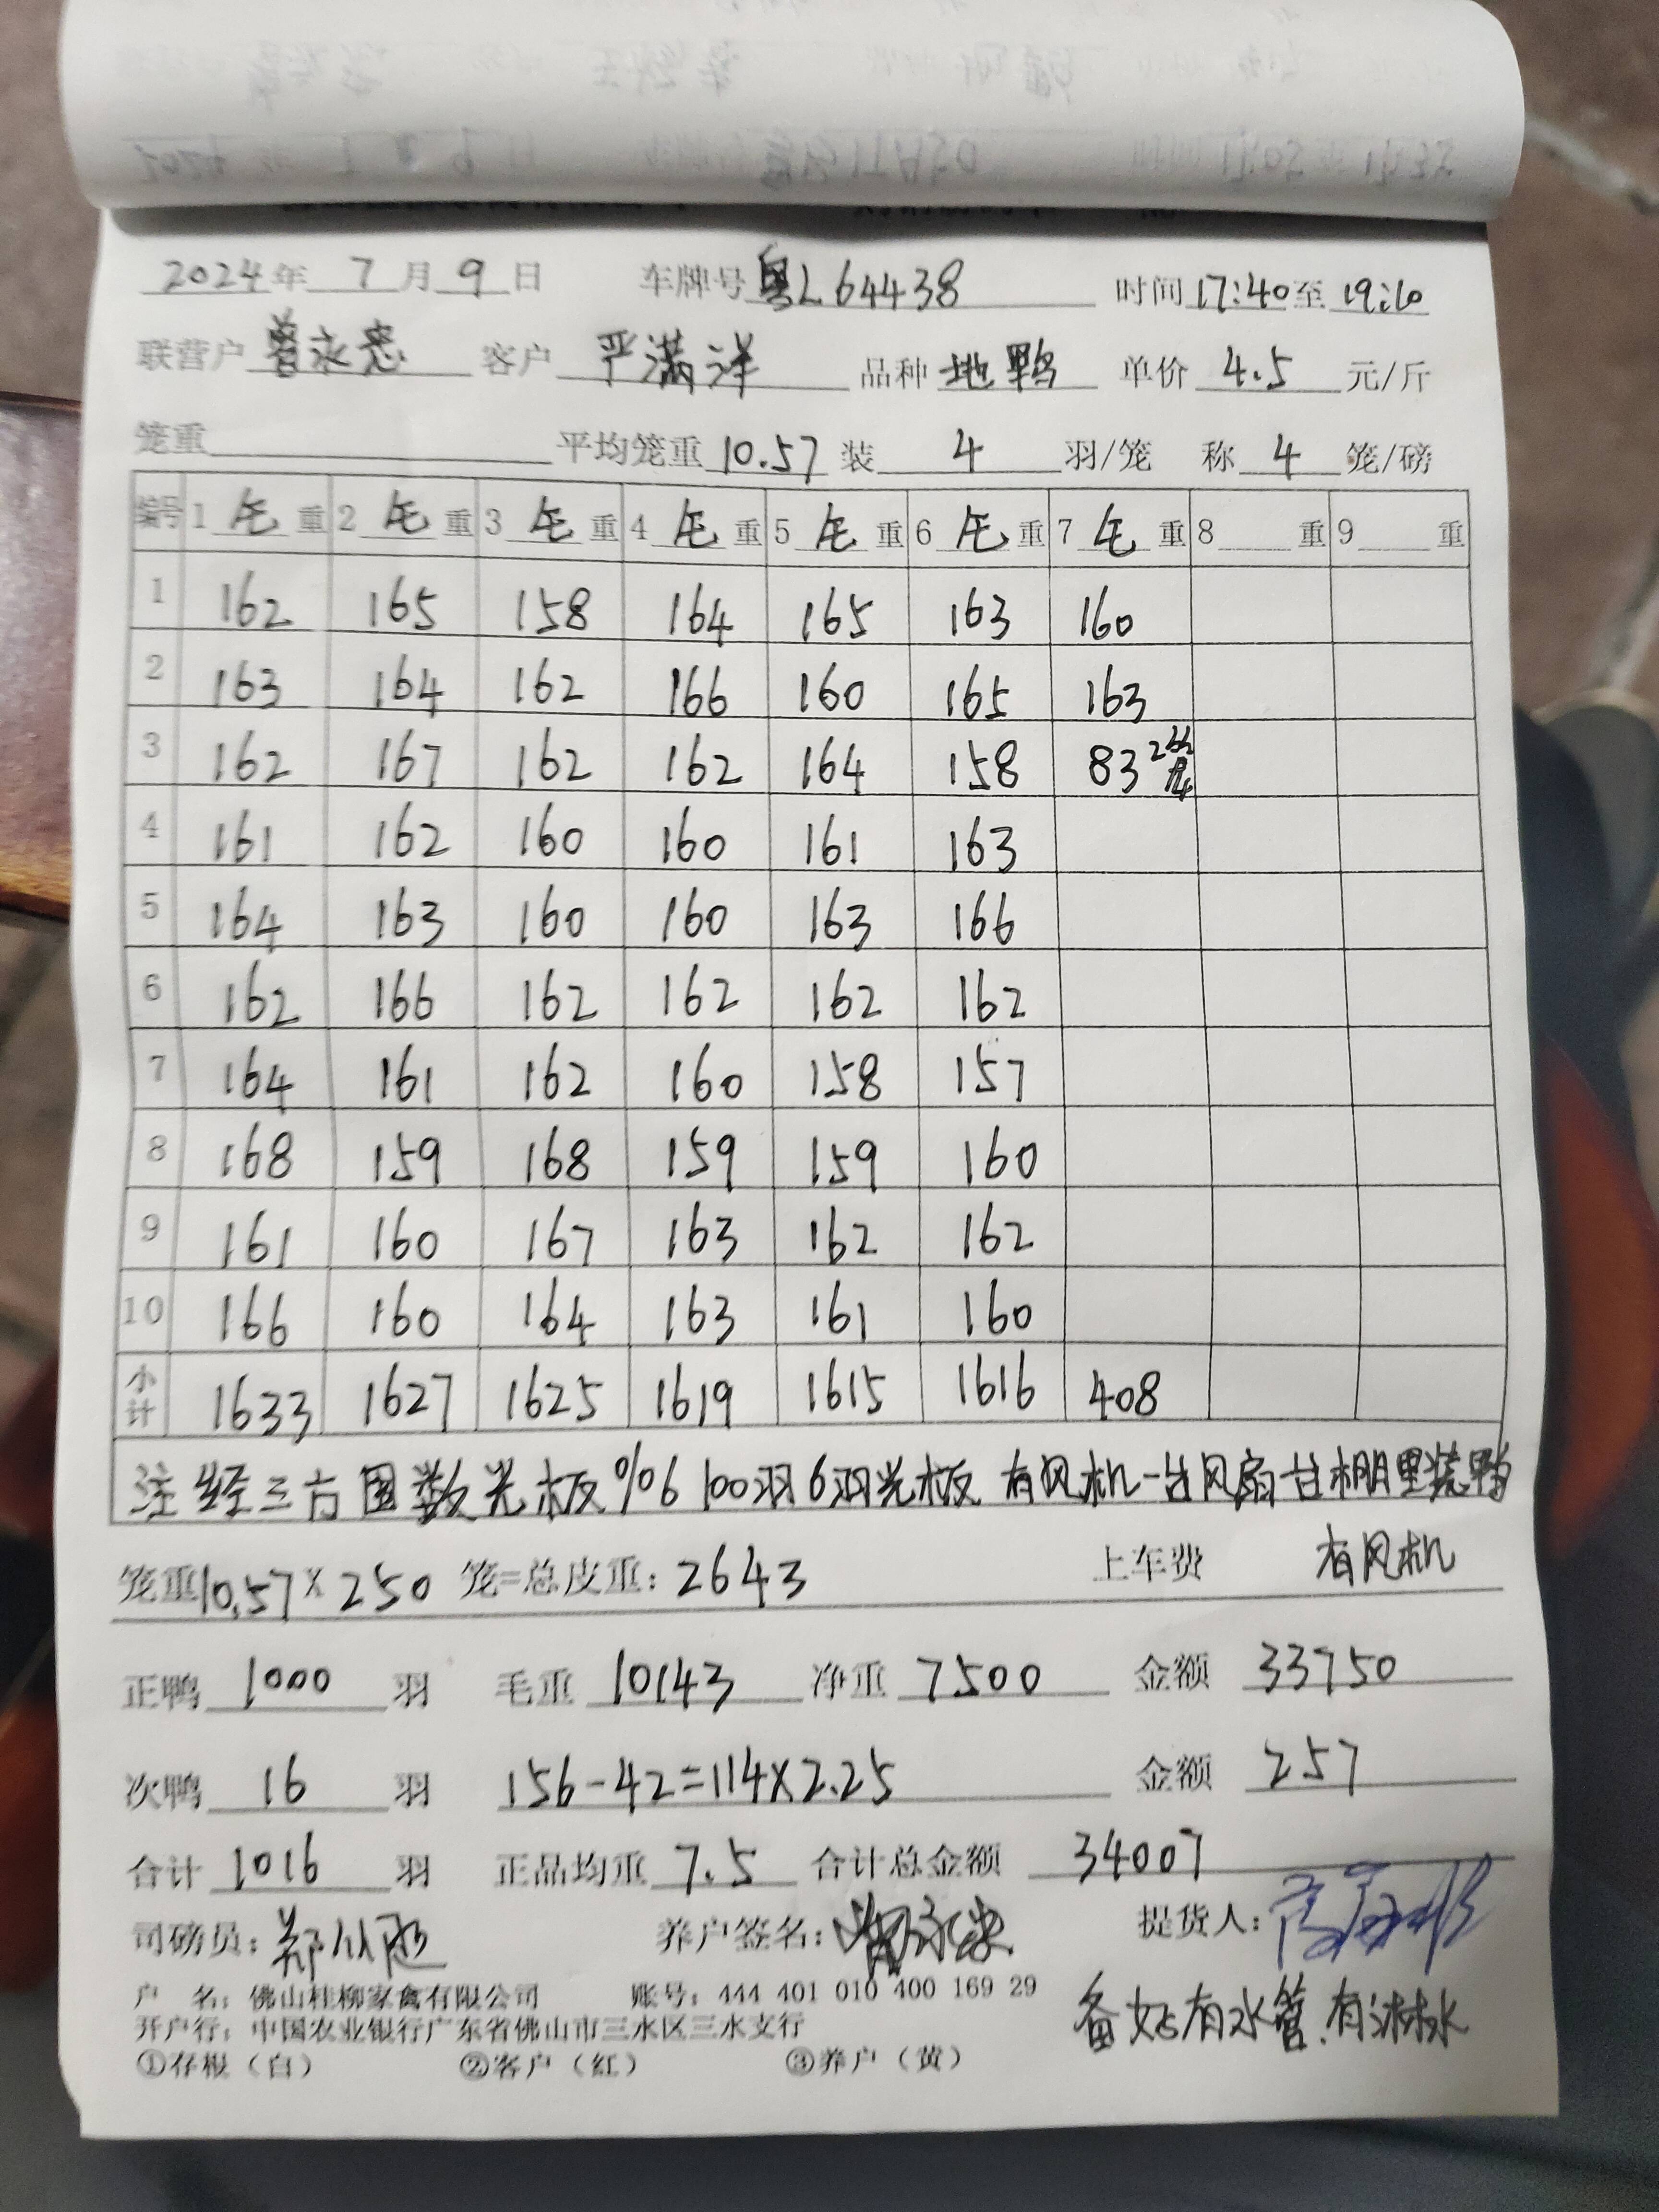 2024年 7 月 9 日 车牌号 粤L64438 时间 17:40 至 19:10
联营户 曾永忠 客户 严满洋 品种 地鸭 单价 4.5 元/斤
笼重 平均笼重 10.57 装 4 羽/笼 称 4 笼/磅
编号 1 毛 重 2 毛 重 3 毛 重 4 毛 重 5 毛 重 6 毛 重 7 毛 重 8 重 9 重
1 162 165 158 164 165 163 160
2 163 164 162 166 160 165 163
3 162 167 162 162 164 158 83 2笼
4 161 162 160 160 161 163
5 164 163 160 160 163 166
6 162 166 162 162 162 162
7 164 161 162 160 158 157
8 168 159 168 159 159 160
9 161 160 167 163 162 162
10 166 160 164 163 161 160
小计 1633 1627 1625 1619 1615 1616 408
注 经三方围数光板%6 100羽6羽光板 有风机一台风扇 棚里装鸭
笼重 10.57 x 250 笼=总皮重: 2643 上车费 有风机
正鸭 1000 羽 毛重 10143 净重 7500 金额 33750
次鸭 16 羽 156-42=114x2.25 金额 257
合计 1016 羽 正品均重 7.5 合计总金额 34007
司磅员: 养户签名: 曾永忠 提货人:
户 名: 佛山桂柳家禽有限公司 账号: 444 401 010 400 169 29
开户行: 中国农业银行广东省佛山市三水区三水支行
①存根(白) ②客户(红) ③养户(黄)
备好有水管.有淋水